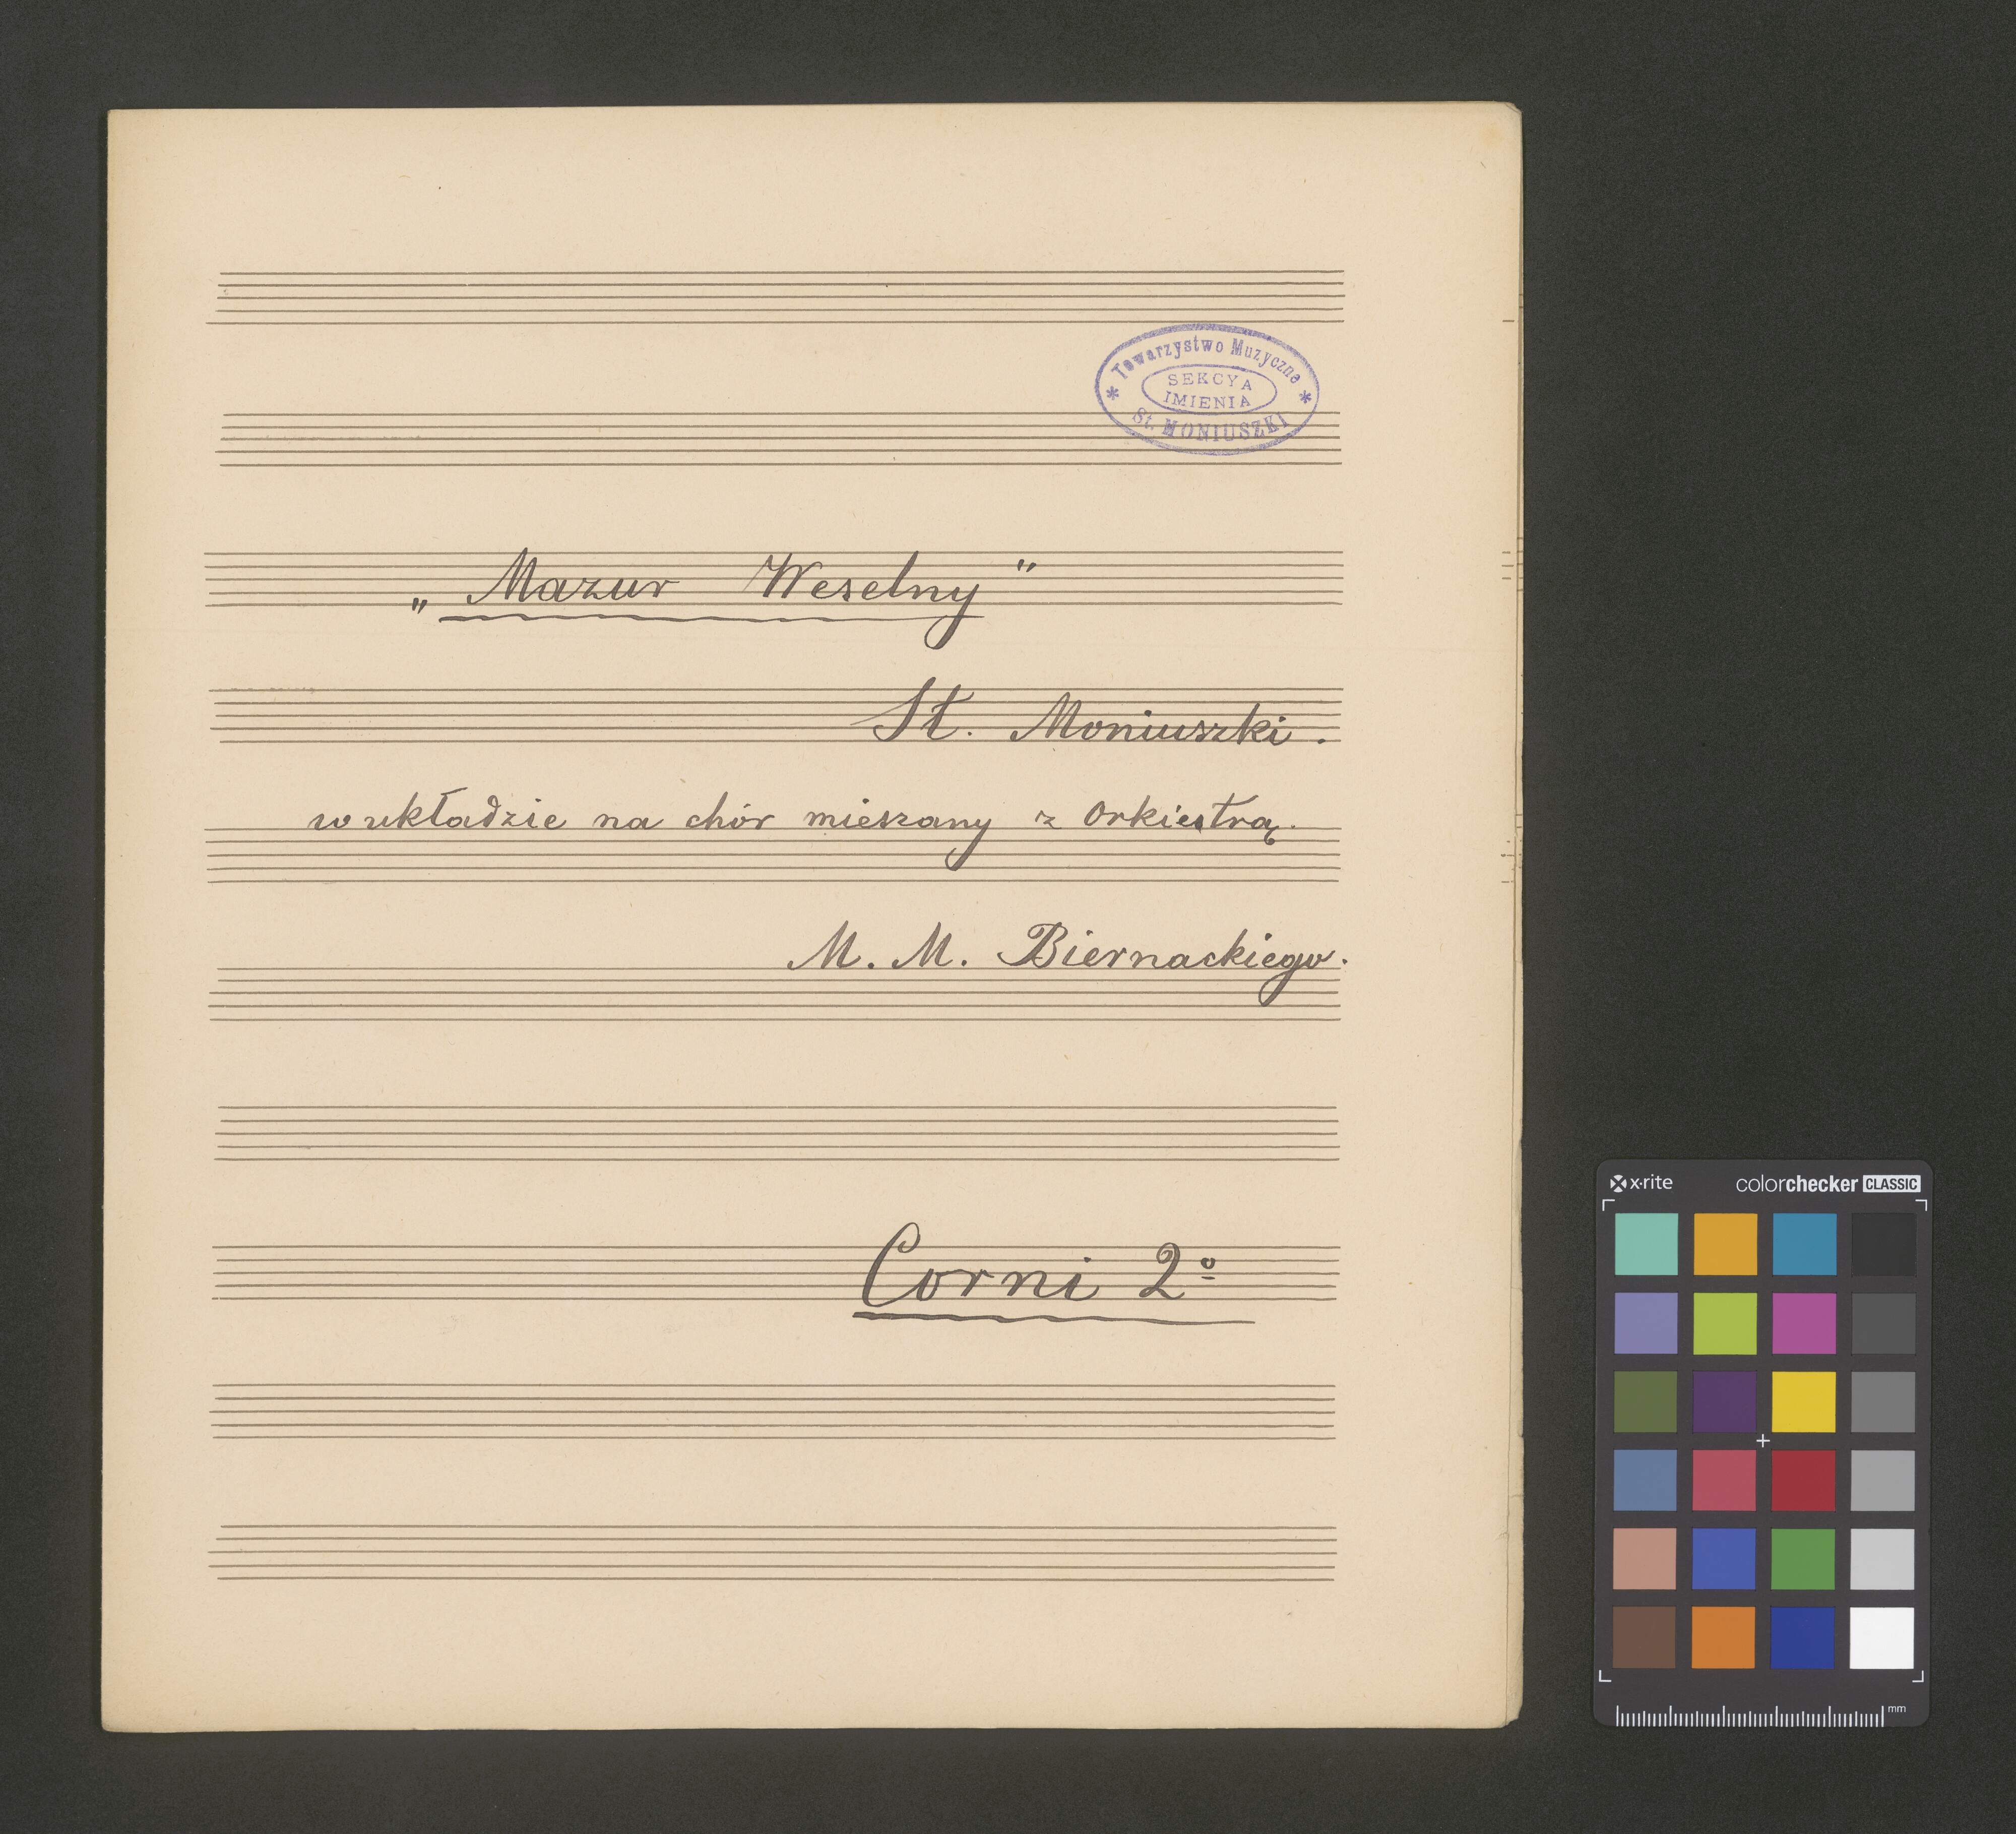 Towarzystwo Muzyczne
SEKCYA
IMIENIA
St. MONIUSZKI
„Mazur Weselny"
St. Moniuszki.
w układzie na chór mieszany z Orkiestrą.
M. M. Biernackiego.
Corni 2º
x·rite colorchecker CLASSIC
mm